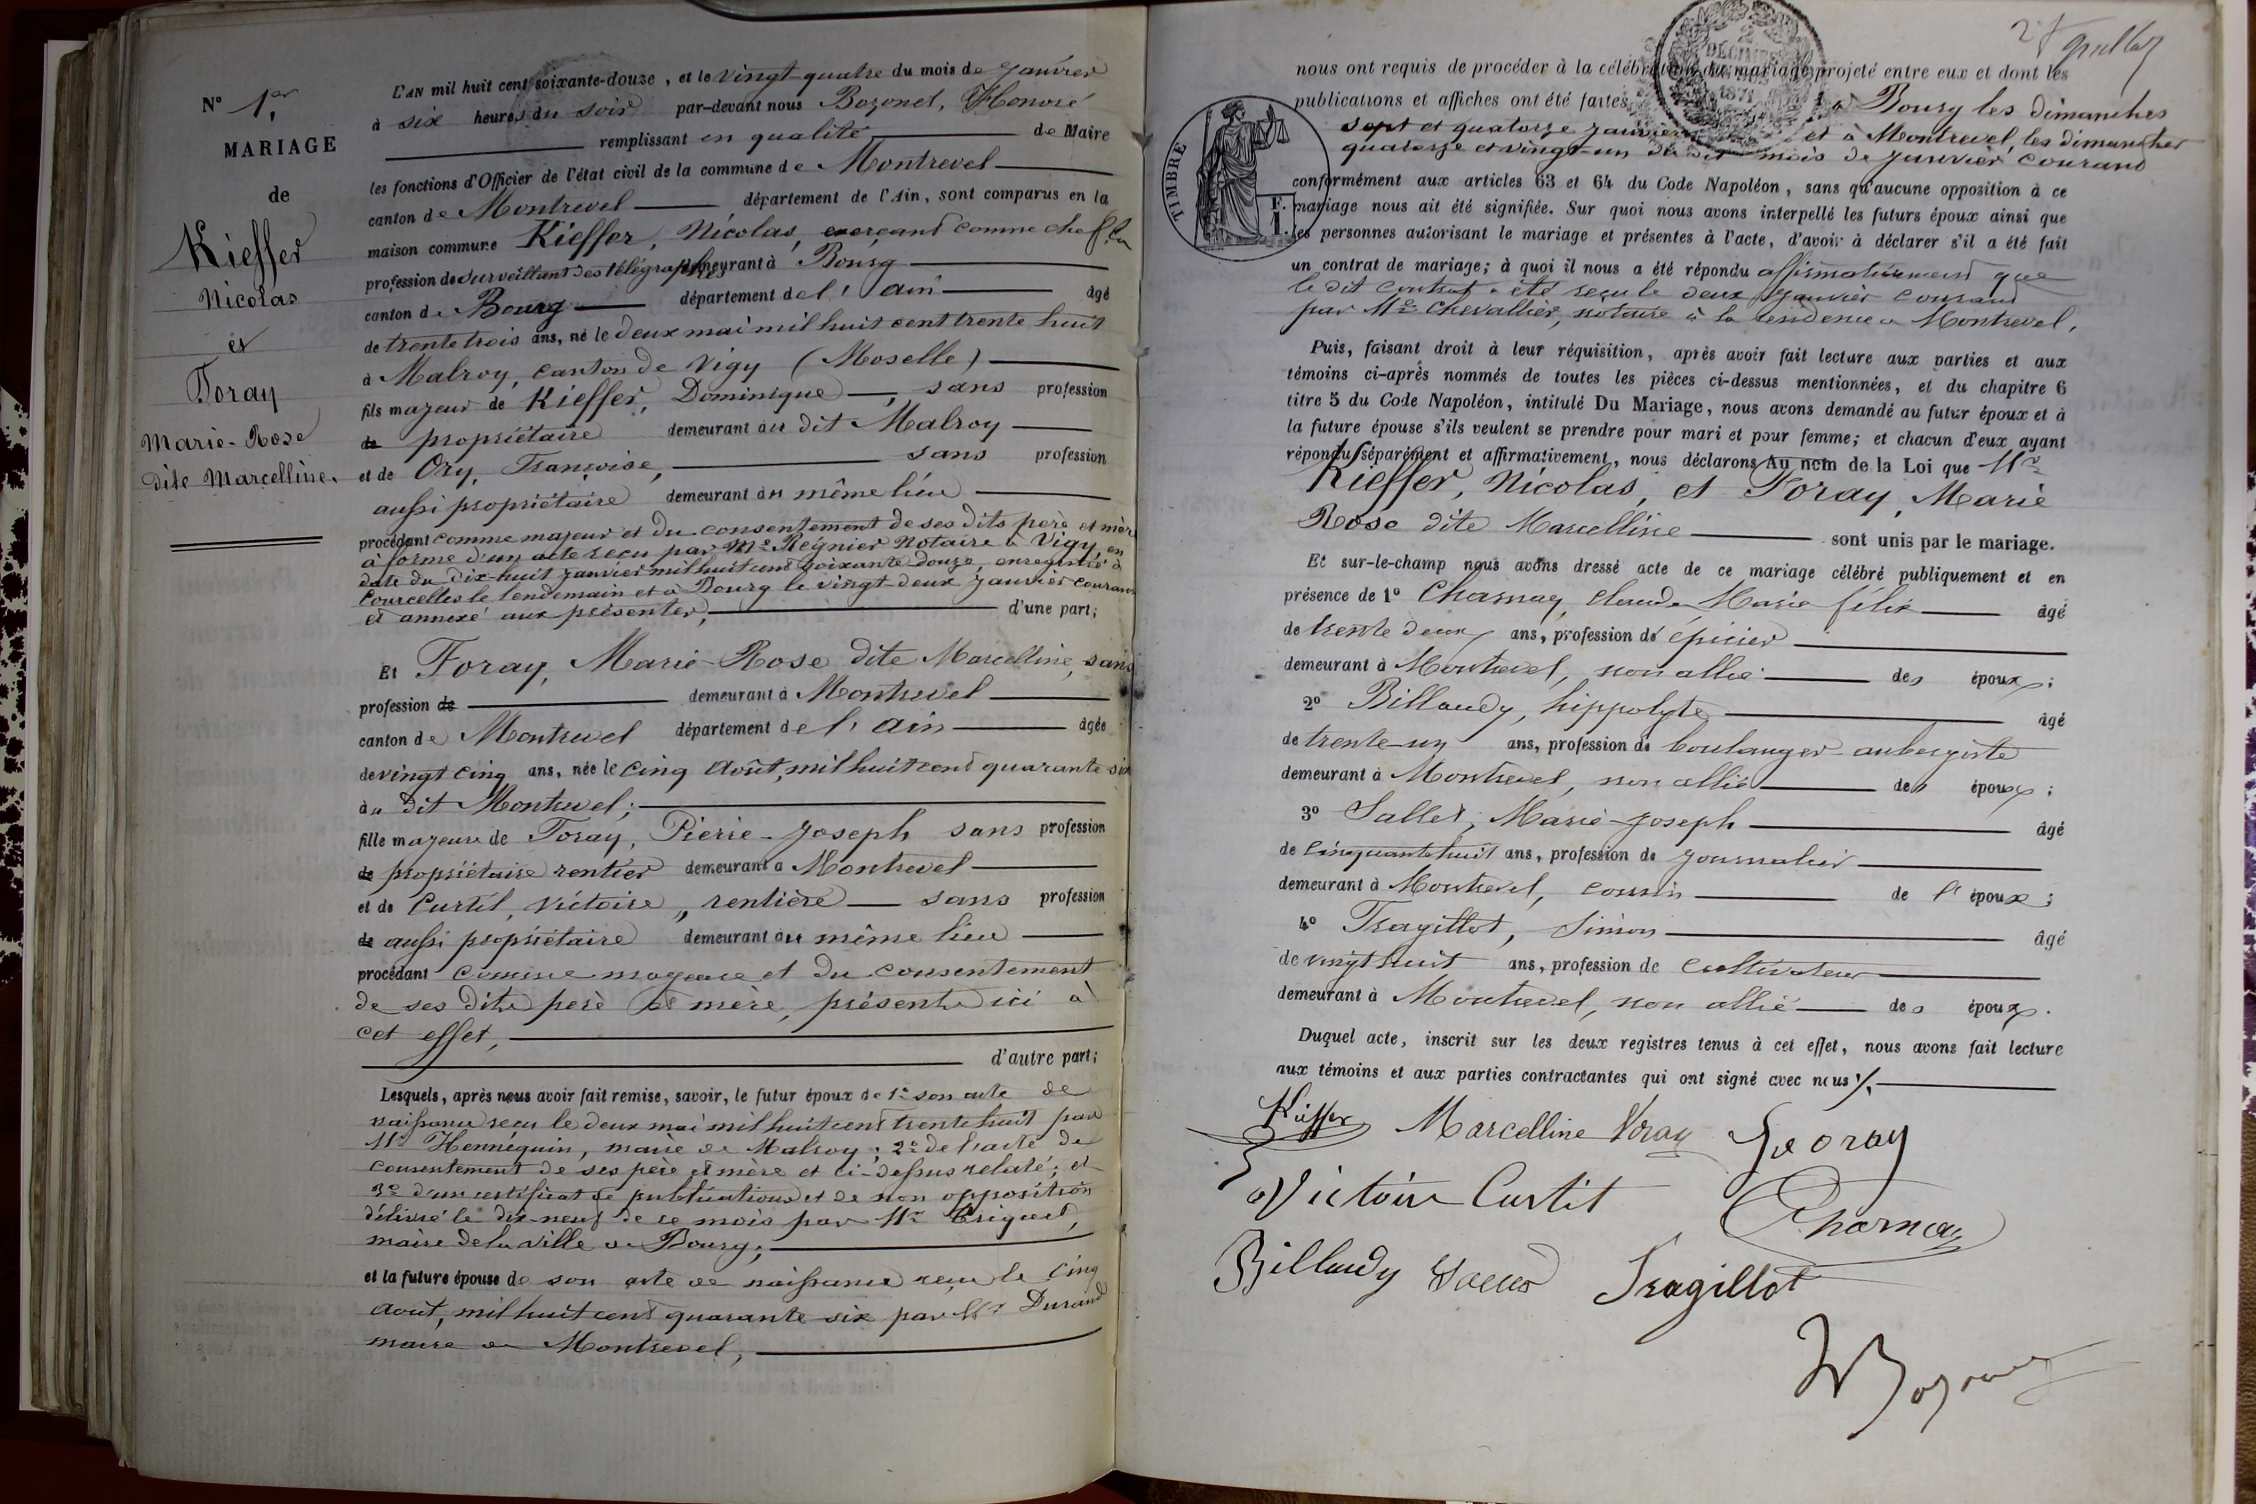 N° 1er
MARIAGE
de
Kieffer
Nicolas
et
Foray
Marie-Rose
dite Marcelline.
L'AN mil huit cent soixante-douze, et le vingt-quatre du mois de Janvier
à six heures du soir par-devant nous Bozonet, Honoré
remplissant en qualité de Maire
les fonctions d'Officier de l'état civil de la commune de Montrevel
canton de Montrevel département de l'Ain, sont comparus en la
maison commune Kieffer, Nicolas, exerçant comme chef la
profession de surveillant des télégraphes demeurant à Bourg
canton de Bourg département de l'ain âgé
de trente trois ans, né le deux mai mil huit cent trente huit
à Malroy, canton de Vigy (Moselle)
fils majeur de Kieffer, Dominique, sans profession
de propriétaire demeurant au dit Malroy
et de Ory, Françoise, sans profession
aussi propriétaire demeurant au même lieu
procédant comme majeur et du consentement de ses dits père et mère
à forme d'un acte reçu par Me Régnier Notaire à Vigy, en
date du dix-huit janvier mil huit cent soixante douze, enregistré à
Courcelles le lendemain et à Bourg le vingt deux janvier courant
et annexé aux présentes, d'une part;
Et Foray, Marie-Rose dite Marcelline, sans
profession de demeurant à Montrevel
canton de Montrevel département de l'ain âgée
de vingt cinq ans, née le cinq Août, mil huit cent quarante six
au dit Montrevel;
fille majeure de Foray, Pierre-Joseph sans profession
de propriétaire rentier demeurant à Montrevel
et de Curtil, Victoire, rentière sans profession
de aussi propriétaire demeurant au même lieu
procédant comme majeure et du consentement
de ses dits père et mère, présents ici à
cet effet,
d'autre part;
Lesquels, après nous avoir fait remise, savoir, le futur époux de 1° son acte de
naissance reçu le deux mai mil huit cent trente huit par
Mr Hennequin, maire de Malroy; 2° de l'acte de
consentement de ses père et mère et ci-dessus relaté; et
3° d'un certificat de publications et de non opposition
délivré le dix-neuf de ce mois par Mr
maire de la ville de Bourg;
et la future épouse de son acte de naissance reçu le cinq
août, mil huit cent quarante six par Mr Durand
maire de Montrevel,
nous ont requis de procéder à la célébration du mariage projeté entre eux et dont les
publications et affiches ont été faites à Bourg les dimanches
sept et quatorze janvier et à Montrevel, les dimanches
quatorze et vingt-un du dit mois de janvier courant
TIMBRE
conformément aux articles 63 et 64 du Code Napoléon, sans qu'aucune opposition à ce
mariage nous ait été signifiée. Sur quoi nous avons interpellé les futurs époux ainsi que
les personnes autorisant le mariage et présentes à l'acte, d'avoir à déclarer s'il a été fait
un contrat de mariage; à quoi il nous a été répondu affirmativement que
le dit contrat a été reçu le deux janvier courant
par Me Chevallier, notaire à la résidence de Montrevel.
Puis, faisant droit à leur réquisition, après avoir fait lecture aux parties et aux
témoins ci-après nommés de toutes les pièces ci-dessus mentionnées, et du chapitre 6
titre 5 du Code Napoléon, intitulé Du Mariage, nous avons demandé au futur époux et à
la future épouse s'ils veulent se prendre pour mari et pour femme; et chacun d'eux ayant
répondu séparément et affirmativement, nous déclarons Au nom de la Loi que Mr
Kieffer, Nicolas, et Foray, Marie
Rose dite Marcelline sont unis par le mariage.
Et sur-le-champ nous avons dressé acte de ce mariage célébré publiquement et en
présence de 1° Charnay, Claude Marie félix âgé
de trente deux ans, profession de épicier
demeurant à Montrevel, non allié des époux;
2° Billaudy, hippolyte âgé
de trente-un ans, profession de boulanger-aubergiste
demeurant à Montrevel, non allié des époux;
3° Sallet, Marie-Joseph âgé
de cinquante huit ans, profession de journalier
demeurant à Montrevel, cousin de l'époux;
4° Tragillot, Simon âgé
de vingt huit ans, profession de cultivateur
demeurant à Montrevel, non allié des époux.
Duquel acte, inscrit sur les deux registres tenus à cet effet, nous avons fait lecture
aux témoins et aux parties contractantes qui ont signé avec nous
Kieffer Marcelline Foray Foray
Victoire Curtit Charnay
Billaudy Tragillot